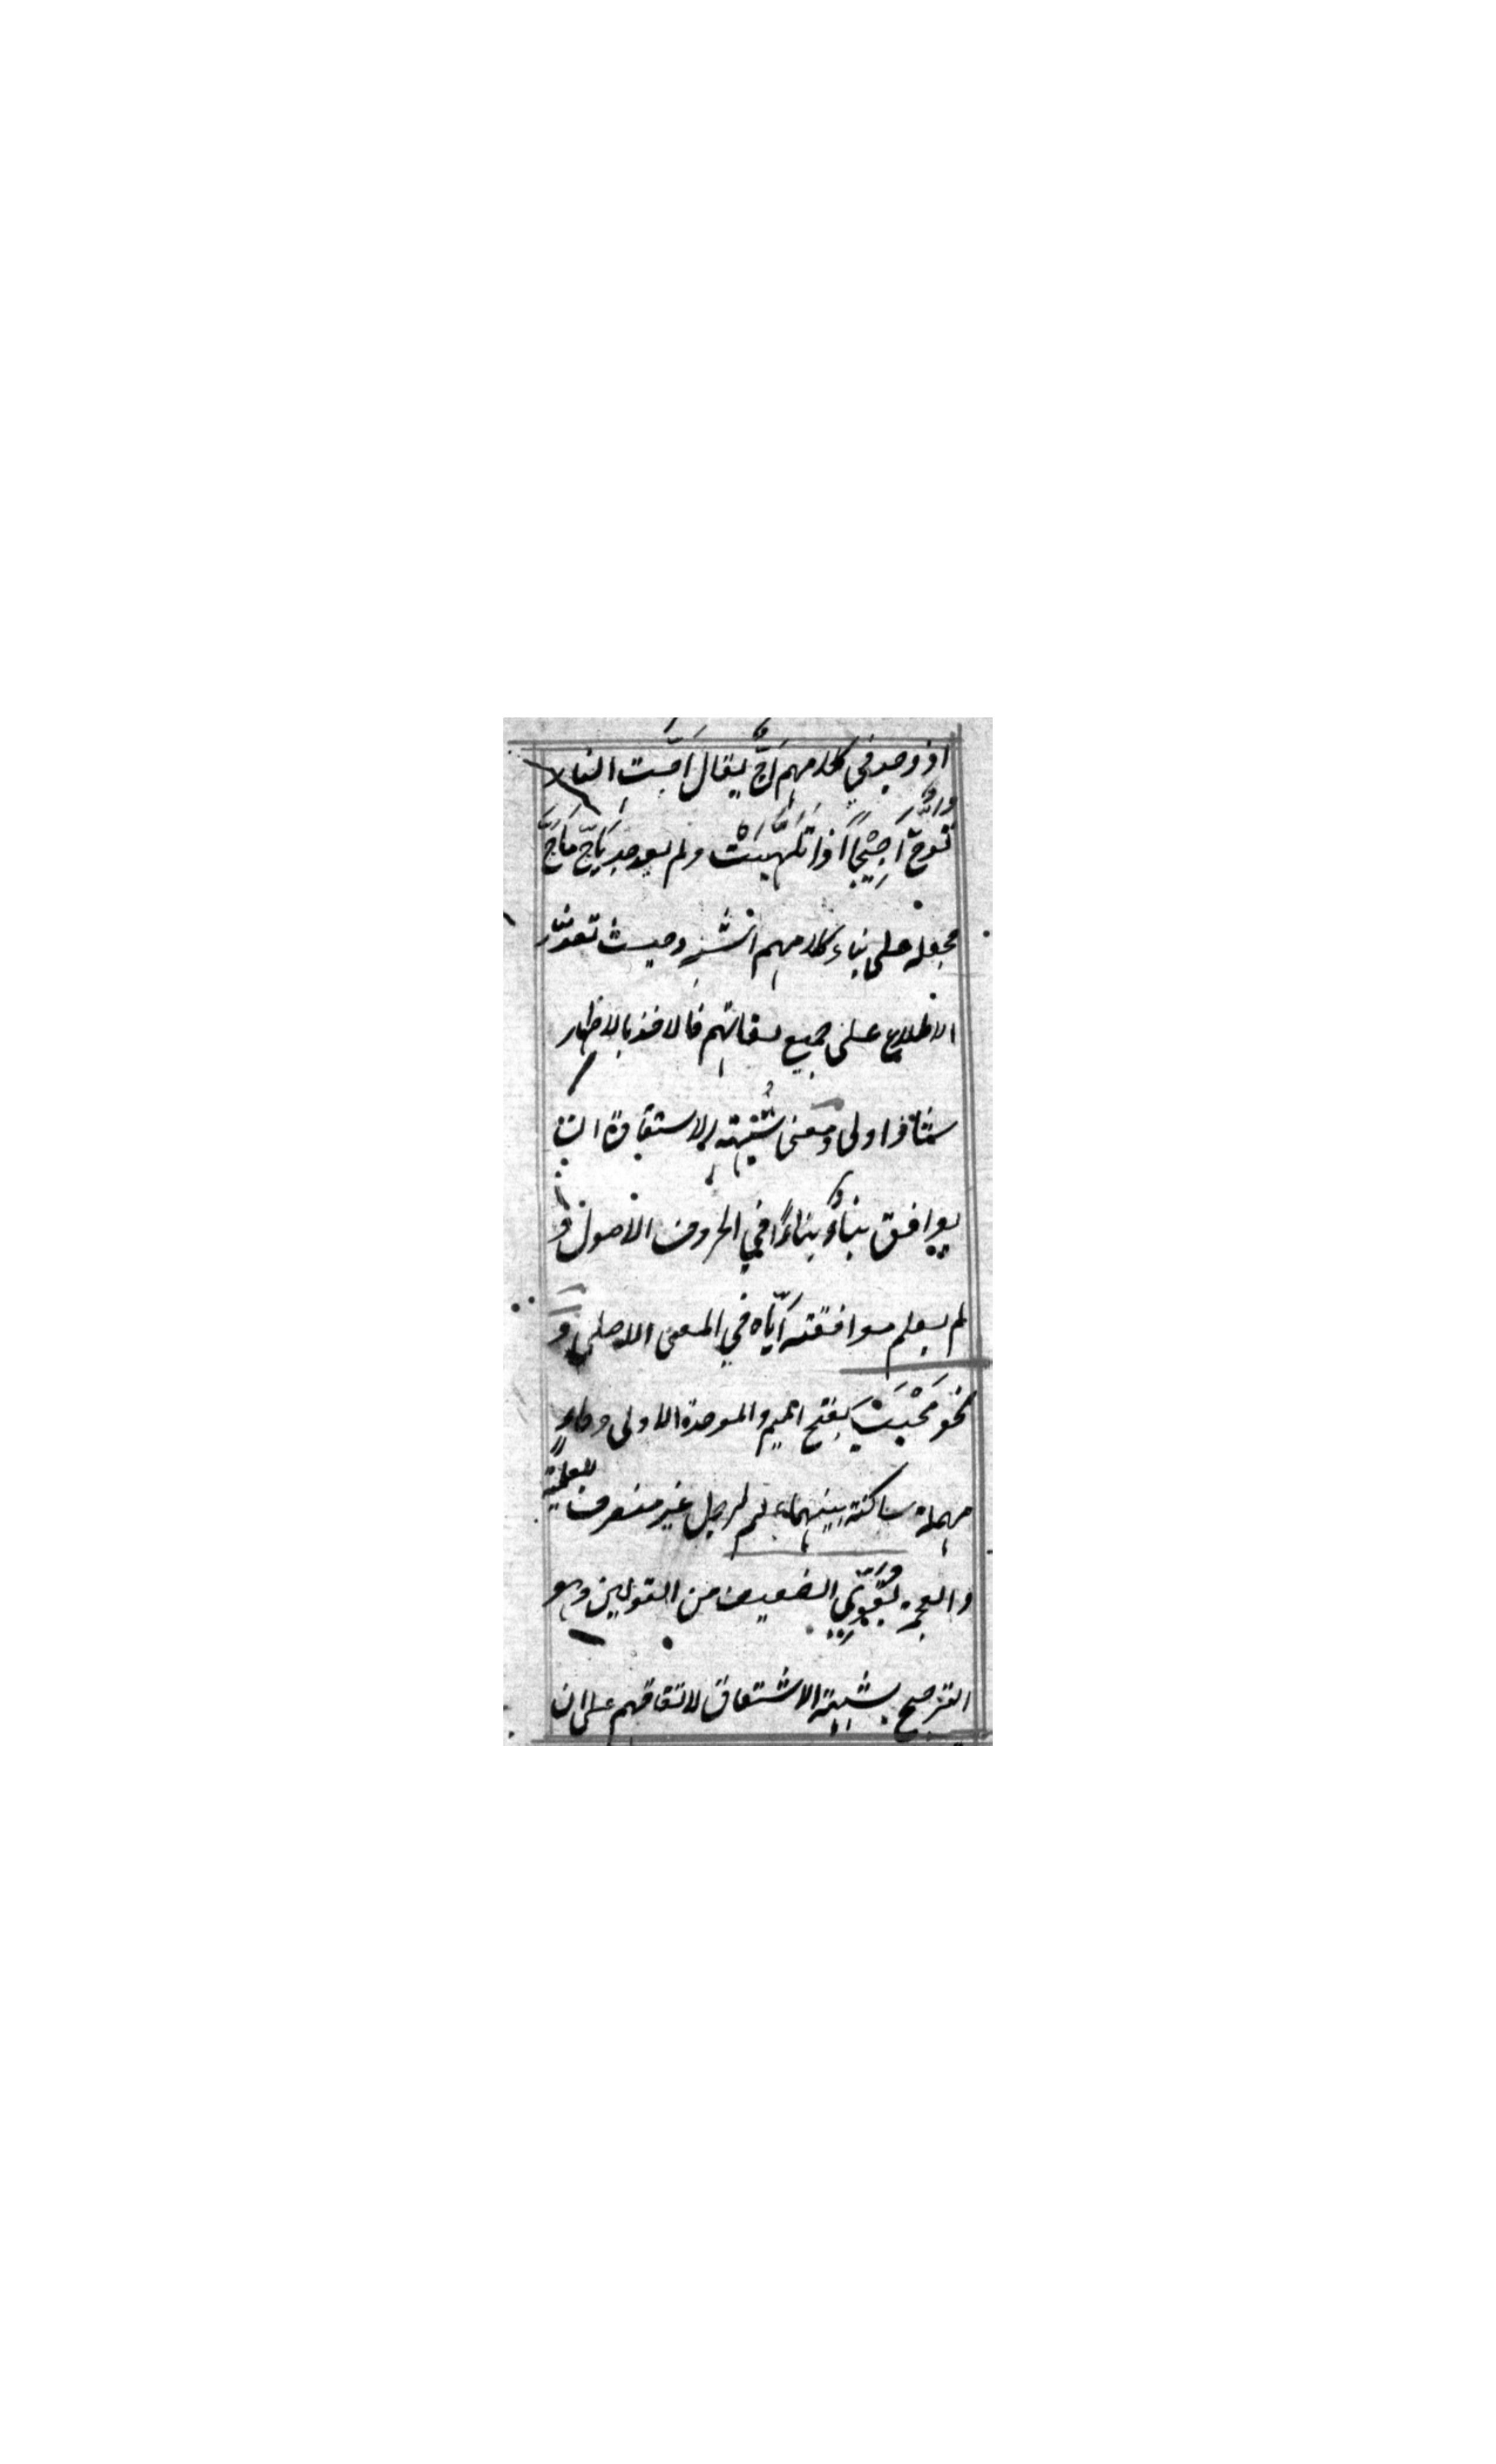 اذ وجد في كلامهم اَجَّ يقال اَجَّت النار
تَوُجُّ اَجِيْجًا اذا تَلَهَّبَتْ ولم يوجد يَأَجَ مَأَجَ
فجعله على بناء كلامهم اشبه وحيث تعذّر
الاطلاع على جميع لغاتهم فالاخذ بالاظهار
شاذا اولى ومعنى شُبْهة الاشتقاق ان
يوافق بناءٌ بناءً في الحروف الاصول و
لم يعلم موافقته ايّاه في المعنى الاصلي و
نحو مَحْبَبْ بفتح الميم والموحدة الاولى وحاءٍ
مهملة ساكنة بينهما علم لرجل غير منصرف للعلمية
والعجمة يُقَوِّي الضعيف من القولين وهو
الترجيح بشبهة الاشتقاق لاتفاقهم على ان